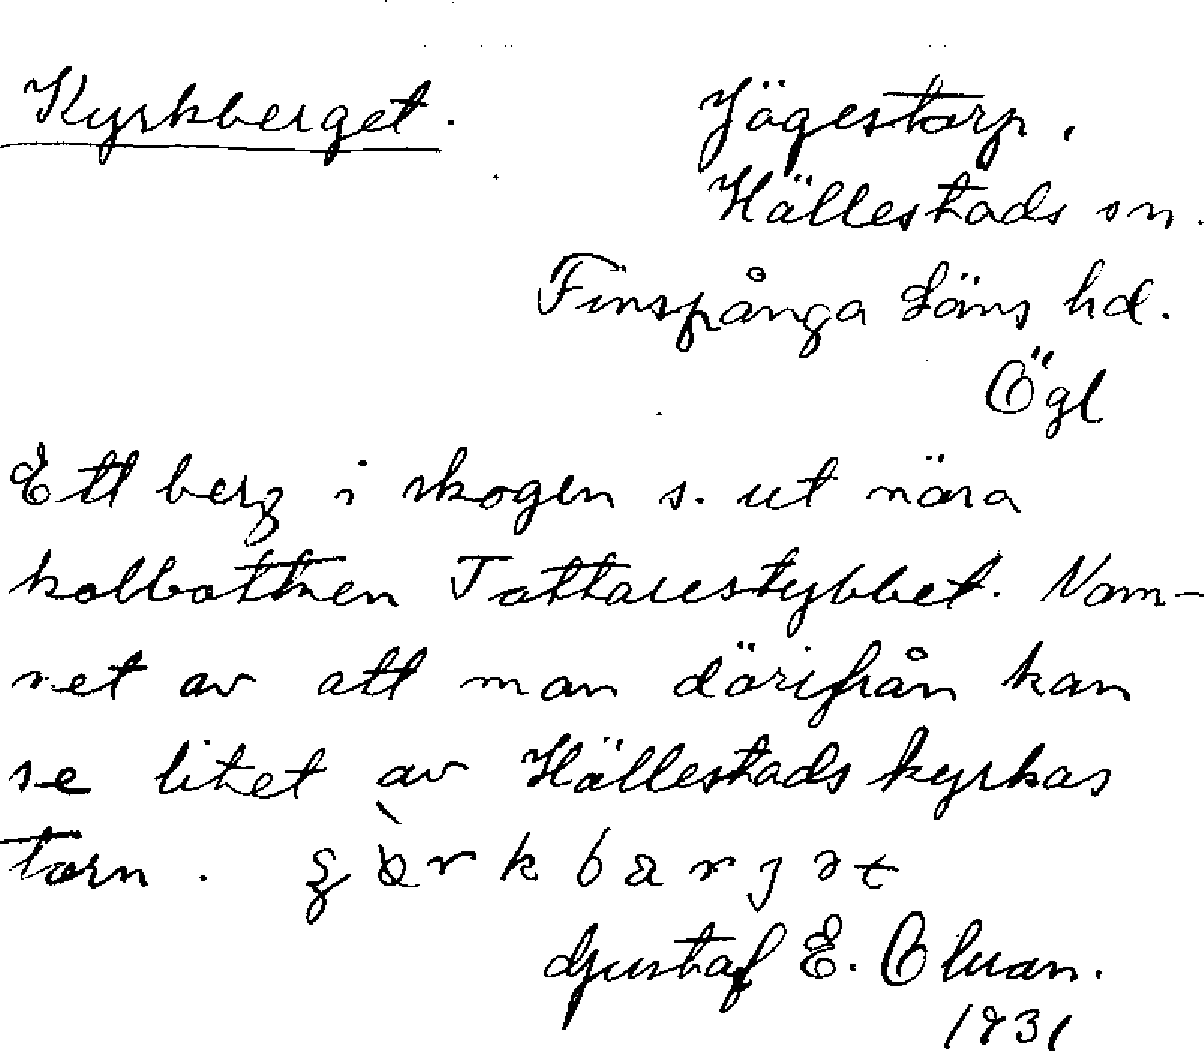 Kyrkberget.
Jägestorp.
Hällestads sn.
Finspånga Läns hd.
Ögl
Ett berg i skogen s. ut nära
kolbottnen Tattarestybbet. Nam-
net av att man därifrån kan
se litet av Hällestads kyrkas
torn.
Gustaf E.
1931